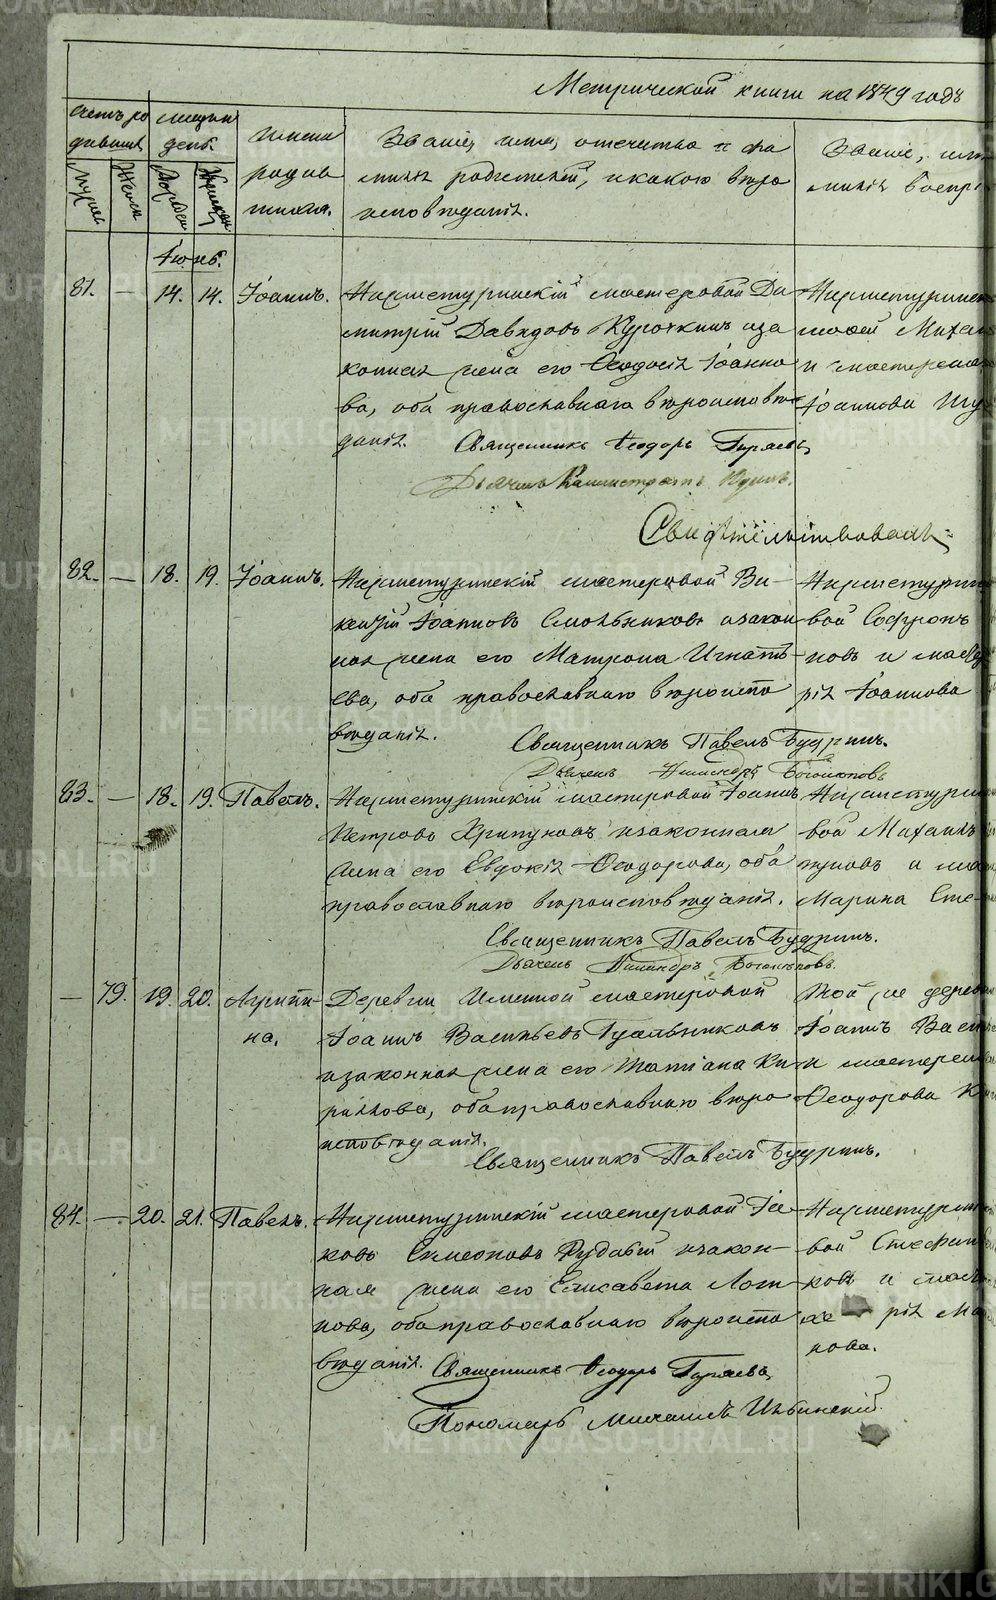 Метрической книги на 1849 годъ
Счетъ ро
дившихъ
Мужес.
Женск.
месяцъ и
день
Рожден.
Крещен.
Имена
родив
шихся.
Званіе, имя, отечество и фа
милія родителей, и какого веро
исповеданія.
Званіе, имя
милія воспрі
Іюнь.
81. — 14. 14. Іоаннъ.
Нижнетуринскій мастеровой Ди
митрій Давидовъ Курочкинъ и за
конная жена его Ѳеодосія Іоанно
ва, оба православнаго вероиспове
данія.
Священникъ Ѳеодоръ Гиряевъ
Нижнетуринск
и мастерск
Іоаннова
Свидѣтельствовалъ
82. — 18. 19. Іоаннъ.
Нижнетуринскій мастеровой Ви-
кентій Іоанновъ Смольниковъ и закон
ная жена его Матрона Игнать-
ева, оба православнаго вероиспо
веданія.
Священникъ Павелъ Будринъ.
Дьячекъ Никандръ Богомоловъ
Нижнетурин
вой Софронъ
новъ и мас
рія Іоаннова
83. — 18. 19. Павелъ.
Нижнетуринскій мастеровой Іоаннъ
Петровъ Хрипуновъ и законная
жена его Евдокія Ѳеодорова, оба
православнаго вероисповеданія.
Священникъ Павелъ Будринъ.
Дьячекъ Никандръ Богомоловъ.
Нижнетурин
вой Михаилъ
пуновъ и ма
Марина Сте-
— 79. 19. 20. Агрипи-
на.
Деревни Именной мастеровой
Іоаннъ Васильевъ Гуальниковъ
и законная жена его Татіана Ки-
рилова, оба православнаго веро
исповеданія.
Священникъ Павелъ Будринъ.
Той же дерев
Іоаннъ Васи
и мастерск
Ѳеодорова К
84. — 20. 21. Павелъ.
Нижнетуринскій мастеровой Іа-
ковъ Симеоновъ Рудавый и закон-
ная жена его Елисавета Логи
нова, оба православнаго вероиспо
веданія.
Священникъ Ѳеодоръ Гиряевъ
Пономарь Михаилъ Ильинскій
Нижнетурин
вой Стефан
ковъ и маст
рія Ма
нова.
METRIKI.GASO-URAL.RU